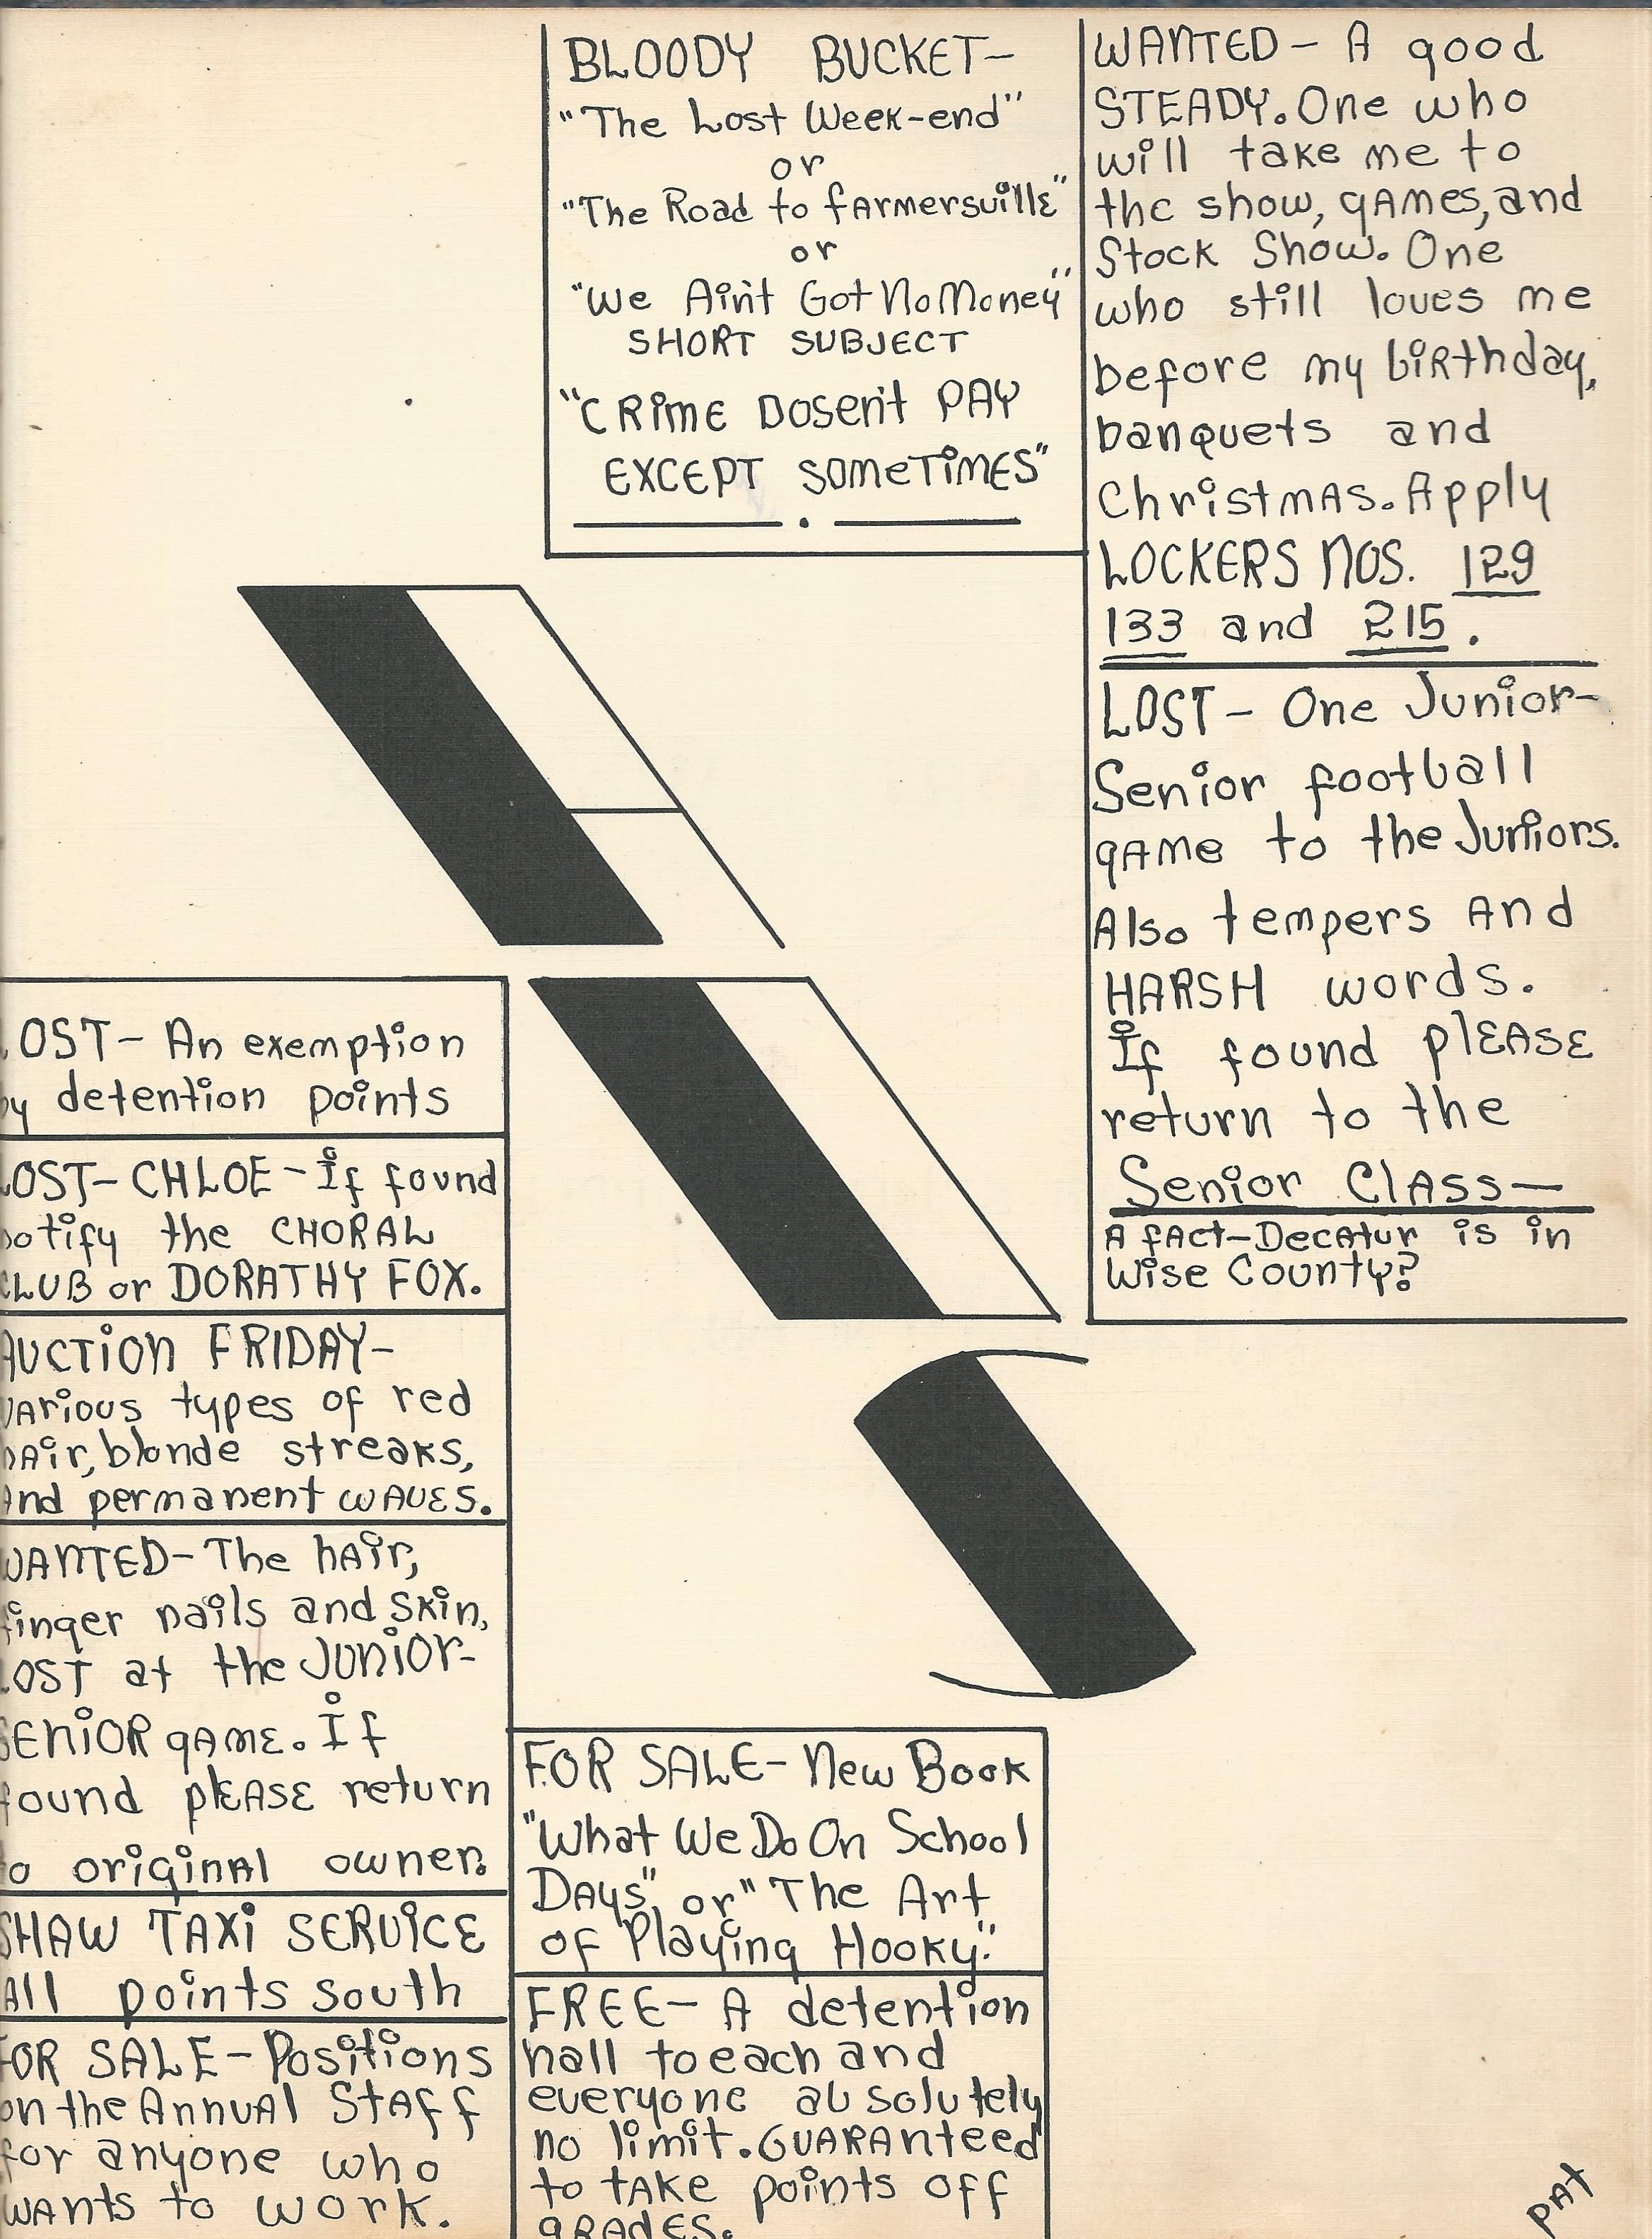 BLOODY BUCKET-
"The Lost Week-end"
or
"The Road to fArmersville"
or
"We Ain't Got No Money"
SHORT SUBJECT
"CRime Dosen't PAY
EXCEPT SOMeTiMES"
WANTED - A good
STEADY. One who
will take me to
the show, gAmes, and
Stock Show. One
who still loves me
before my biRthday,
banquets and
ChristmAs. Apply
LOCKERS NOS. 129
133 and 215.
LOST - One Junior-
Senior football
gAme to the Juniors.
Also tempers And
HARSH words.
If found plEASE
return to the
Senior ClAss-
A fAct-DecAtur is in
Wise County?
OST- An exemption
by detention points
LOST- CHLOE - If found
notify the CHORAL
CLUB or DORATHY FOX.
AUCTiON FRIDAY-
vArious types of red
hAir, blonde streaks,
And permanent wAVES.
WANTED- The hAir,
finger nails and skin,
LOST at the JUNiOR-
SENiOR gAmE. If
found plEASE return
to originAl owner.
SHAW TAXi SERViCE
All points south
FOR SALE - Positions
on the AnnuAl StAff
for anyone who
wAnts to work.
FOR SALE- New Book
"What We Do On School
DAys", or "The Art
of Playing Hooky."
FREE- A detention
hall to each and
everyone absolutely
no limit. GUARAnteed
to tAKe points off
gRAdES.
PAt